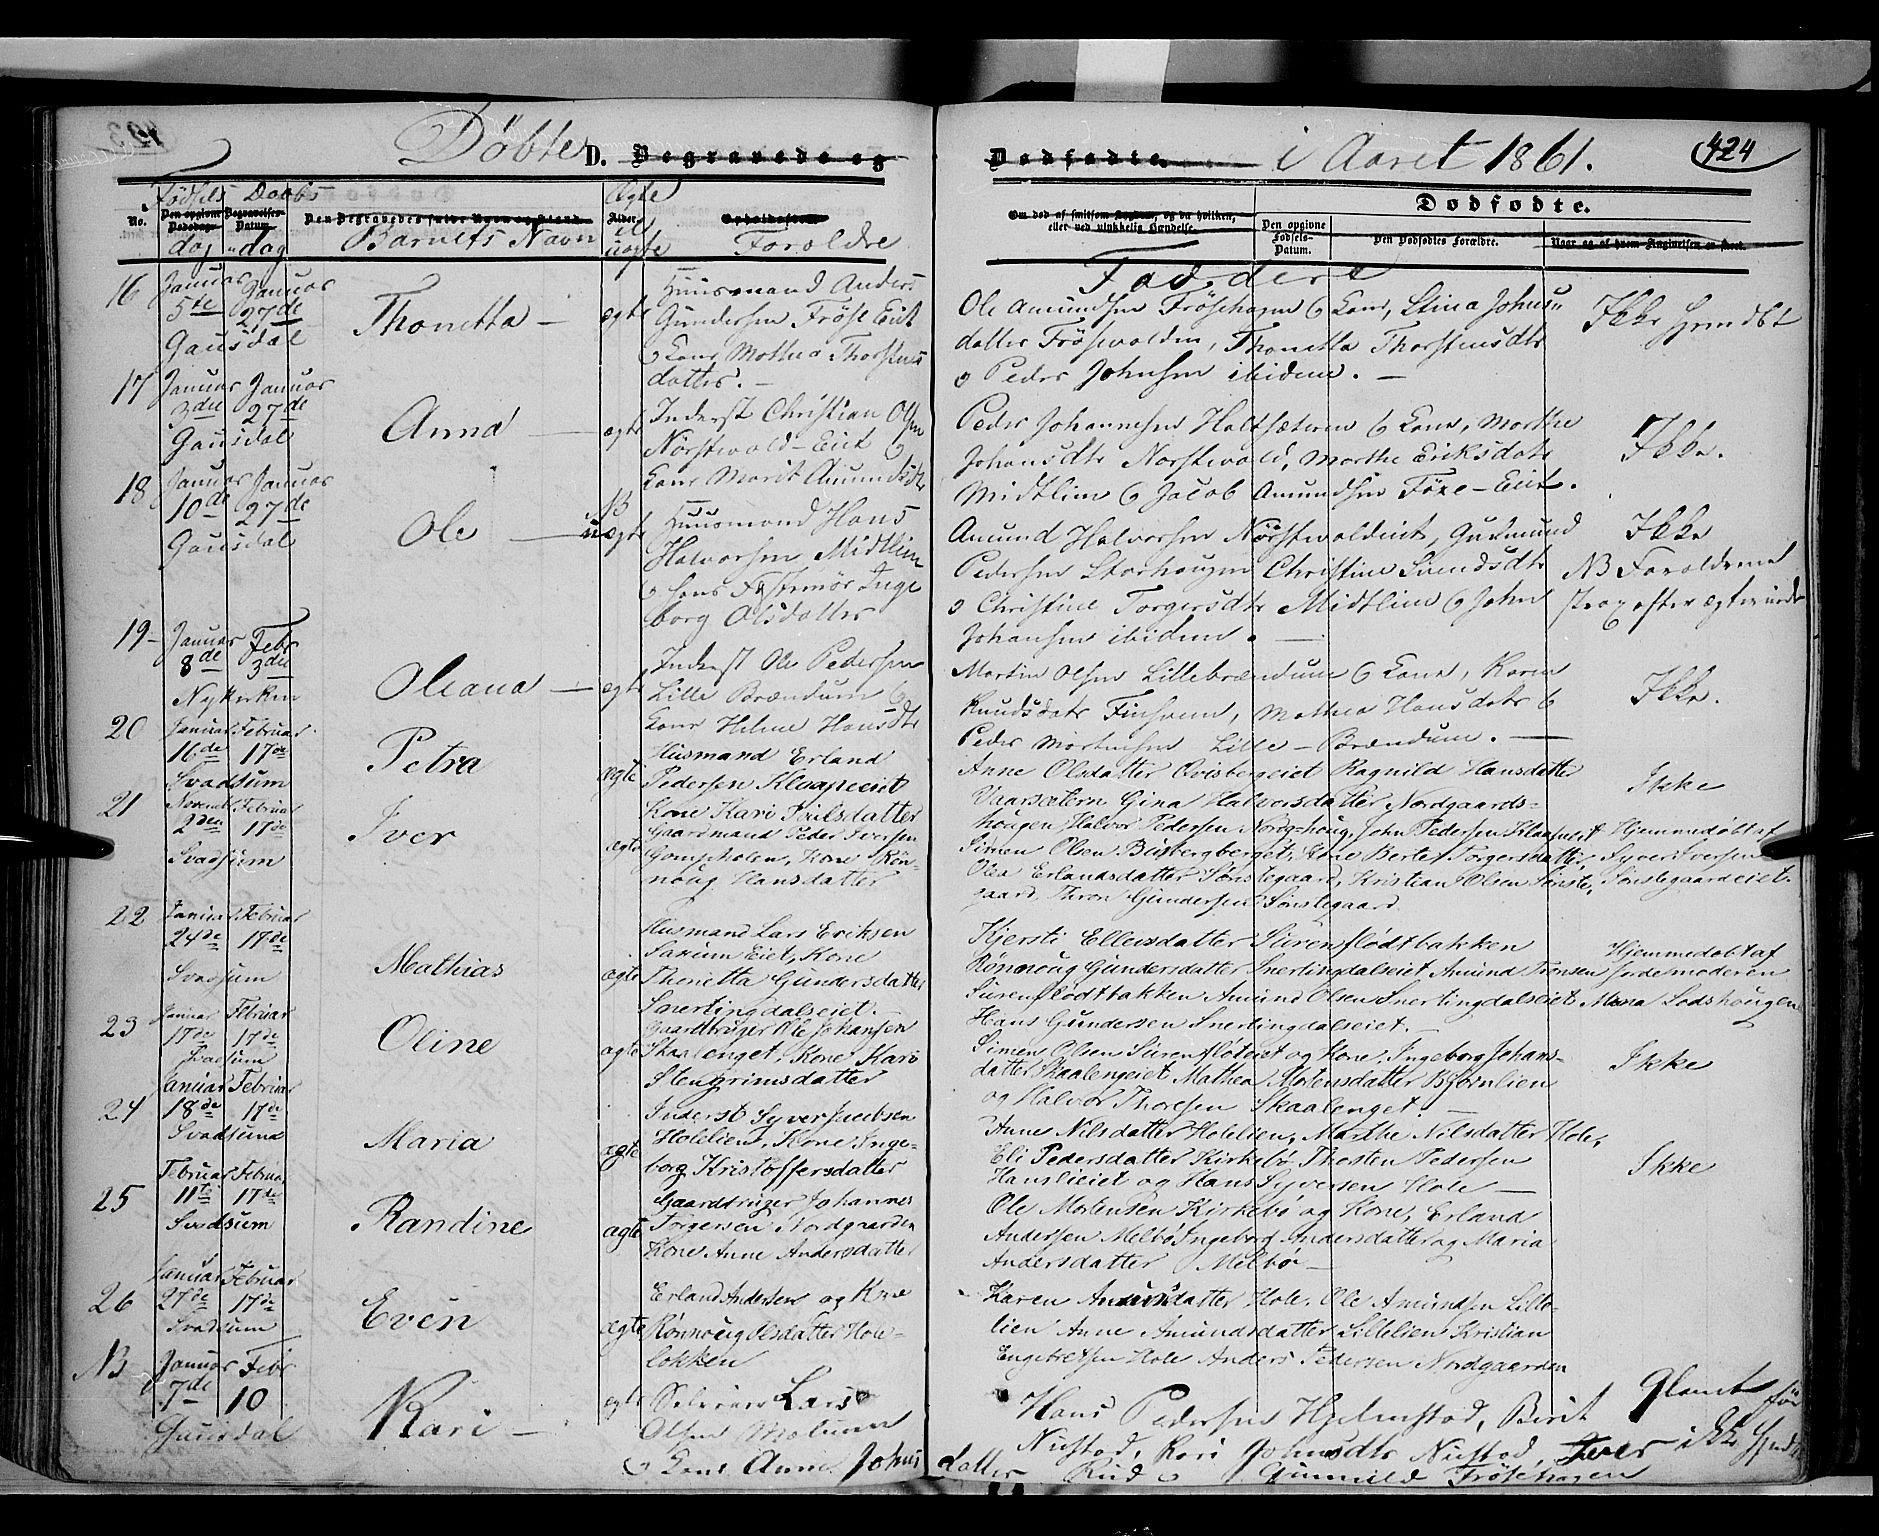 Döbte D. Begravede og Dødfødte. i Aaret 1861. 424
Fødsels Daabs Ægte
No. Den opgivne Dødsdag. Begravelses-Datum. Den Begravedes fulde Navn og Stand. Alder Opholdssted.
dag dag Barnets Navn uægte Forældre
Om død af smitsom Sygdom, og da hvilken, eller ved ulykkelig Hændelse.
Dødfødte.
Den opgivne Fødsels-Datum. Den Dødfødtes Forældre. Naar og af hvem Angivelsen er skeet.
Faddere
16 Januar 5te Januar 27de Gausdal
Thonetta — ægte
Huusmand Anders
Gundersen Fröse Eiet
Kone Mathea Thorstens
datter. —
Ole Amundsen Fröshagen & Kone, Stina Johns
datter Frösvolden, Thonetta Thorstensdtr
Peder Johnsen ibidem. —
Ikke
17 Januar 3die Januar 27de Gausdal
Anna — ægte
Inderst Christian Olsen
Norstevold-Eiet &
Kone Marit Amundsdtr
Peder Johannesen Holtsæteren & Kone, Marthe
Johansdtr Norstevold, Marthe Eriksdatr
Midtlien & Jacob Amundsen Före-Eiet.
Ikke.
18 Januar 10de Januar 27de Gausdal
Ole — uægte
Huusmand Hans
Halvorsen Midtlien
& hans Fæstemör Inge
borg Olsdatter
Amund Halvorsen Nörstevoldeiet, Gudmund
Pedersen Storhougen Christine Svendsdtr
Christine Torgersdtr Midtlien & John
Johansen ibidem. —
Ikke
NB Forældrene
strax efter ægteviede
19 Januar 8de Febr 3die Nykirken
Oleana — ægte
Inderst Ole Pedersen
Lille Brændum &
Kone Helene Hansdtr
Martin Olsen Lillebrændum & Kone, Karen
Knudsdatr Finhven, Mathea Hansdatr &
Peder Mortensen Lille-Brændum. —
Ikke.
20 Januar 16de Februar 17de Svadsum
Petra ægte
Husmand Erland
Pedersen Klæpeeiet
Kone Kari Poulsdatter
Anne Olsdatter Qvisbergeiet Ragnild Hansdatter
Vaarsætern Gina Halvorsdatter Nordgaards-
hougen Halvor Pedersen Nordg-houg, John Pedersen Klæpeeiet
Ikke
21 Novembr 2den Februar 17de Svadsum
Iver ægte
Gaardmand Peder Iversen
Gompholen, Kone Rön-
noug Hansdatter
Simen Olsen Bisbergberget, Kone Berte Torgersdatter,
Olea Erlandsdatter Sönstegaard, Kristian Olsen Sönste-
gaard, Thron Gundersen Sönstegaard
Hjemmedøbt af
Syver Iversen
Sönstegaardeiet.
22 Januar 24de Februar 17de Svadsum
Mathias ægte
Husmand Lars Eriksen
Saxum Eiet, Kone
Thonetta Gundersdatter
Snertingdalseiet. —
Kjersti Ellensdatter Surenflödtbakken
Rönnoug Gundersdatter Snertingdalseiet Amund Tronsen
Surenflödtbakken Amund Olsen Snertingdalseiet
Hans Gundersen Snertingdalseiet. —
Hjemmedøbt af
Jordemoderen
Maria Lodshougen
23 Januar 17de Februar 17de Svadsum
Oline ægte
Gaardbruger Ole Johansen
Skaalenget, Kone Kari
Stengrimsdatter
Simen Olsen Surenflöteiet og Kone, Ingeborg Johans-
datter Skaalengeiet Mathea Mortensdatter Bjørnlien
og Halvor Thoresen Skaalenget. —
Ikke
24 Januar 18de Februar 17de Svadsum
Maria ægte
Inderst Syver Jacobsen
Holelien, Kone Inge-
borg Kristoffersdatter
Anne Nilsdatter Holelien, Marthe Nilsdatter Hole,
Eli Pedersdatter Kirkebö, Thosten Pedersen
Hanslieiet og Hans Syversen Hole —
Ikke
25 Februar 11te Februar 17de Svadsum
Randine ægte
Gaardbruger Johannes
Torgersen Nordgaarden
Kone Anne Andersdatter
Ole Mortensen Kirkebö og Kone, Erland
Andersen Melbö Ingeborg Andersdatter og Maria
Andersdatter Melbö —
26 Januar 27de Februar 17de Svadsum
Even ægte
Erland Andersen og Kone
Rönnoug Olsdatter Hole-
lokken
Karen Amundsdatter Hole. Ole Amundsen Lille-
lien Anne Amundsdatter Lillelien Kristian
Engebretsen Hole Anders Pedersen Nordgaarden
NB Januar 7de Febr 10 Gausdal
Kari — ægte
Selveier Lars
Olsen Molumen
& Kone Anne Johns
datter
Hans Pedersen Hjelmstad, Berit
Nustad, Kari Johnsdtr Nustad, Iver
Rud & Gunnild Fröshagen
Glemt før
ikke